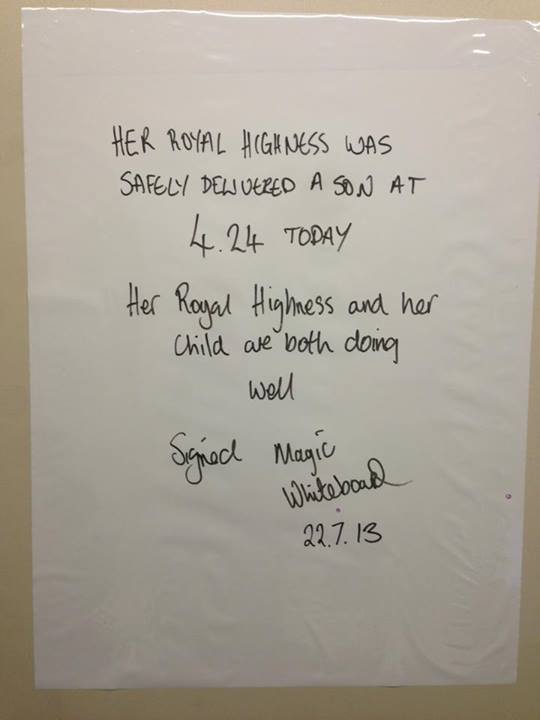 HER ROYAL HIGHNESS WAS
SAFELY DELIVERED A SON AT
4.24 TODAY
Her Royal Highness and her
Child are both doing
well
Signed Magic
Whiteboard
22.7.13